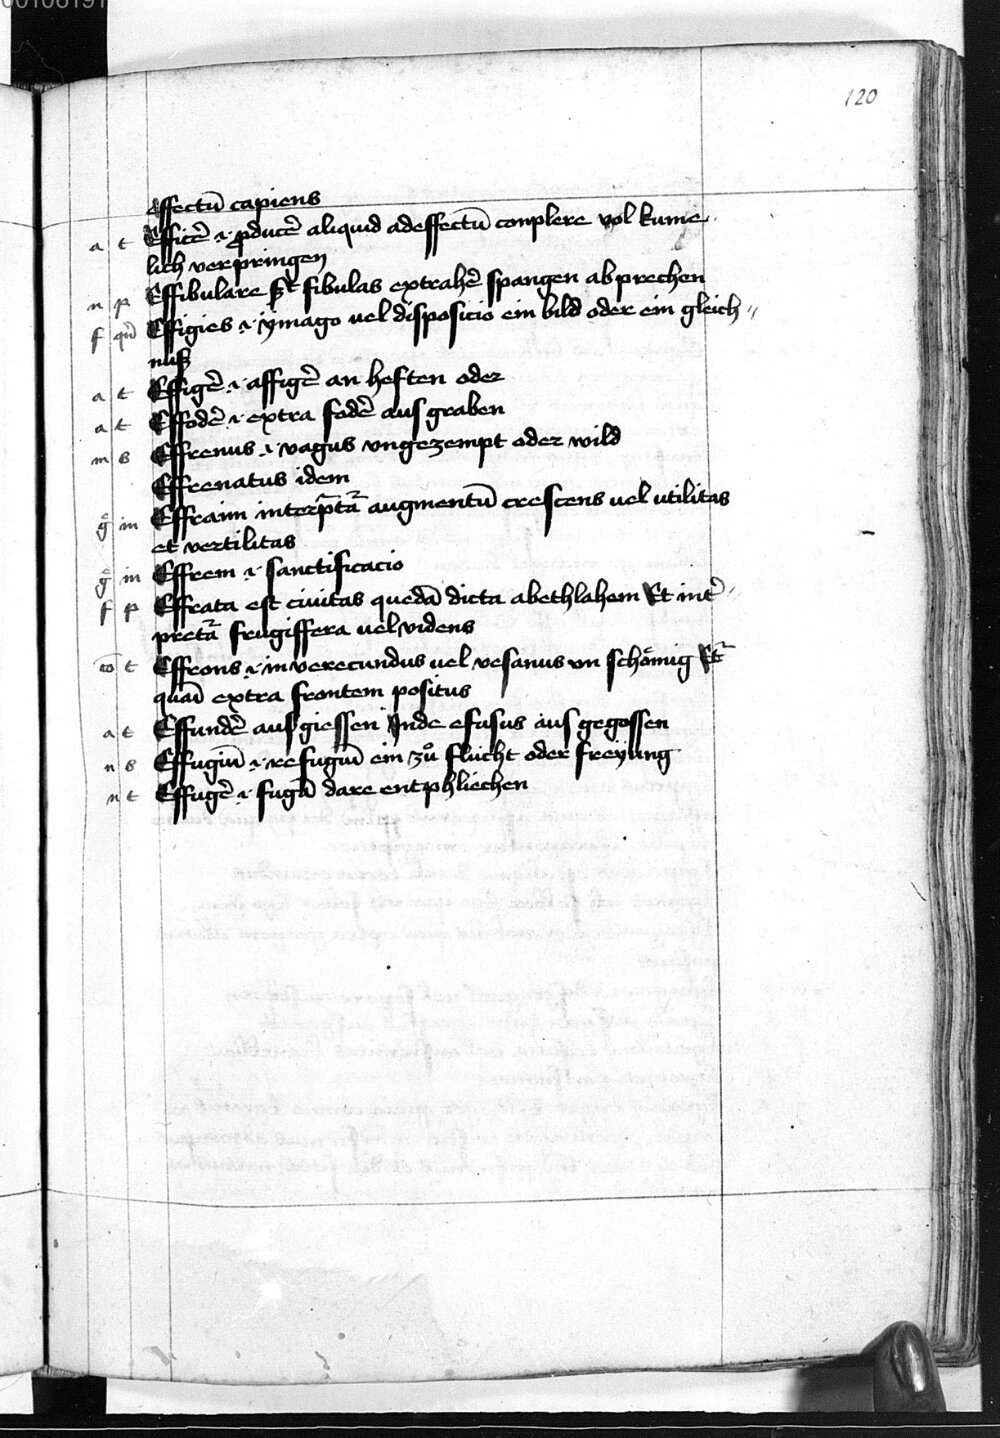 00106191
120
effectū capiens
a t Efficē .i. ꝓducē aliquid ad effectū conplere vol kume
lich verpringen
n p Effibulare .i. fibulas extrahē spangen ab prechen
f qūi Effigies .i. ymago uel disposicio ein bild oder ein gleich〃
nuß
a t Effigē .i. affigē an heften oder
a t Effodē .i. extra fodē aus graben
m s Effrenus .i. vagus vngezempt oder wild
Effrenatus idem
g in Effraim interp̄tat᷑ augmentū crescens uel utilitas
et vertilitas
g in Effrem .i. sanctificacio
f p Effrata est ciuitas quedā dicta a bethlahem Et int̄〃
pretat᷑ frugiffera uel videns
cō t Effrons .i. inverecundus uel vesanus vn schämig
quasi extra frontem positus
a t Effundē ausgiessen Inde efusus aus gegossen
n s Effugiū .i. refugiū ein zůflucht oder freyung
n t Effugē .i. fugā dare entphliechen